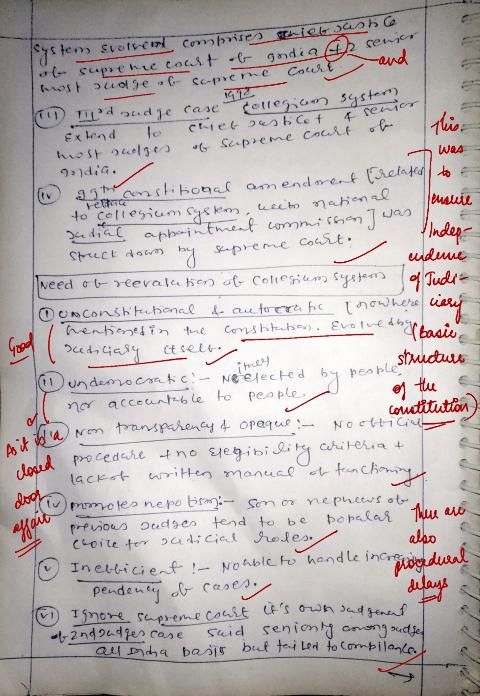 System evolved comprises chief Justice
of supreme court of India + 2 senior
and
most Judge of supreme court.
1998
(iii) IIIrd Judge case Collegium System
Extend to chief Justice + 4 senior
most Judges of supreme court of
India.
(iv) 99th constitional amendment [related
to collegium system, with national
Judicial appointment commission] was
struck down by supreme court.
This
was
to
ensure
Indep-
endence
of Judi-
ciary
(Basic
structure
of the
constitution)
Need of reevalation of collegium system
(i) unconstitutional & autocratic [nowhere
mentioned in the constitution. Evolved by
Judiciary itself.
Good
(ii) undemocratic :- Not elected by people,
nor accountable to people.
(iii) Non transparency & opaque :- No official
procedure + no elegibility criteria +
lack of written manual of functioning
As it is a
closed
door
affair
(iv) promotes nepotism :- son or nephews of
previous Judges tend to be popular
choice for Judicial roles.
(v) Inefficient :- No able to handle increasing
pendency of cases.
There are
also
procedural
delays
(vi) Ignore supreme court it's own Judgement
of 2nd Judges case said seniority among Judges
all India basis but failed to compliance